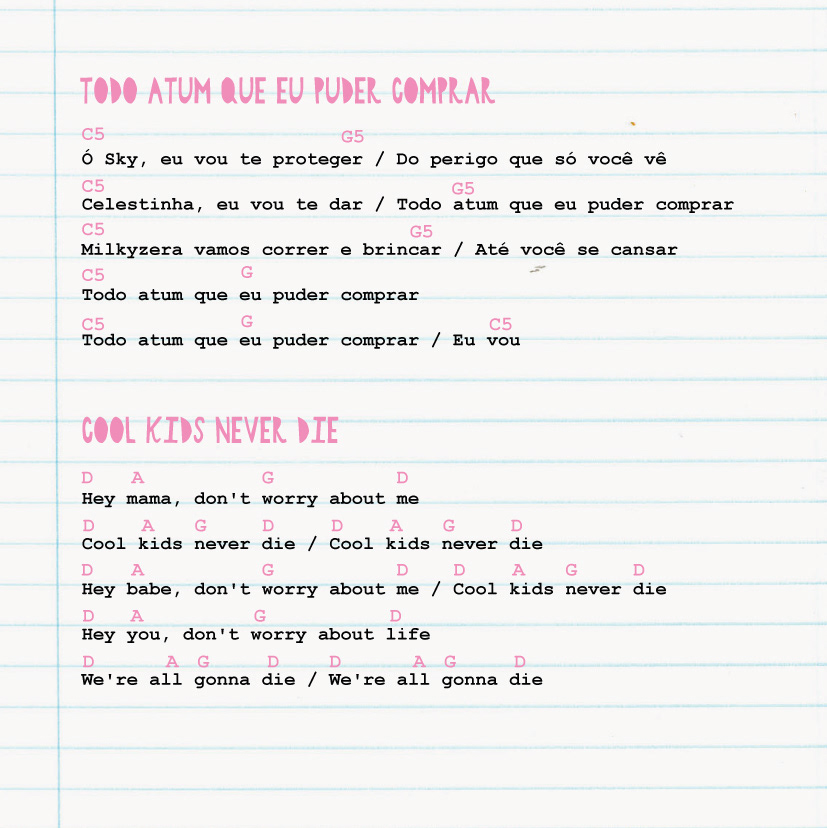 TODO ATUM QUE EU PUDER COMPRAR
C5 G5
Ó Sky, eu vou te proteger / Do perigo que só você vê
C5 G5
Celestinha, eu vou te dar / Todo atum que eu puder comprar
C5 G5
Milkyzera vamos correr e brincar / Até você se cansar
C5 G
Todo atum que eu puder comprar
C5 G C5
Todo atum que eu puder comprar / Eu vou
COOL KIDS NEVER DIE
D A G D
Hey mama, don't worry about me
D A G D D A G D
Cool kids never die / Cool kids never die
D A G D D A G D
Hey babe, don't worry about me / Cool kids never die
D A G D
Hey you, don't worry about life
D A G D D A G D
We're all gonna die / We're all gonna die